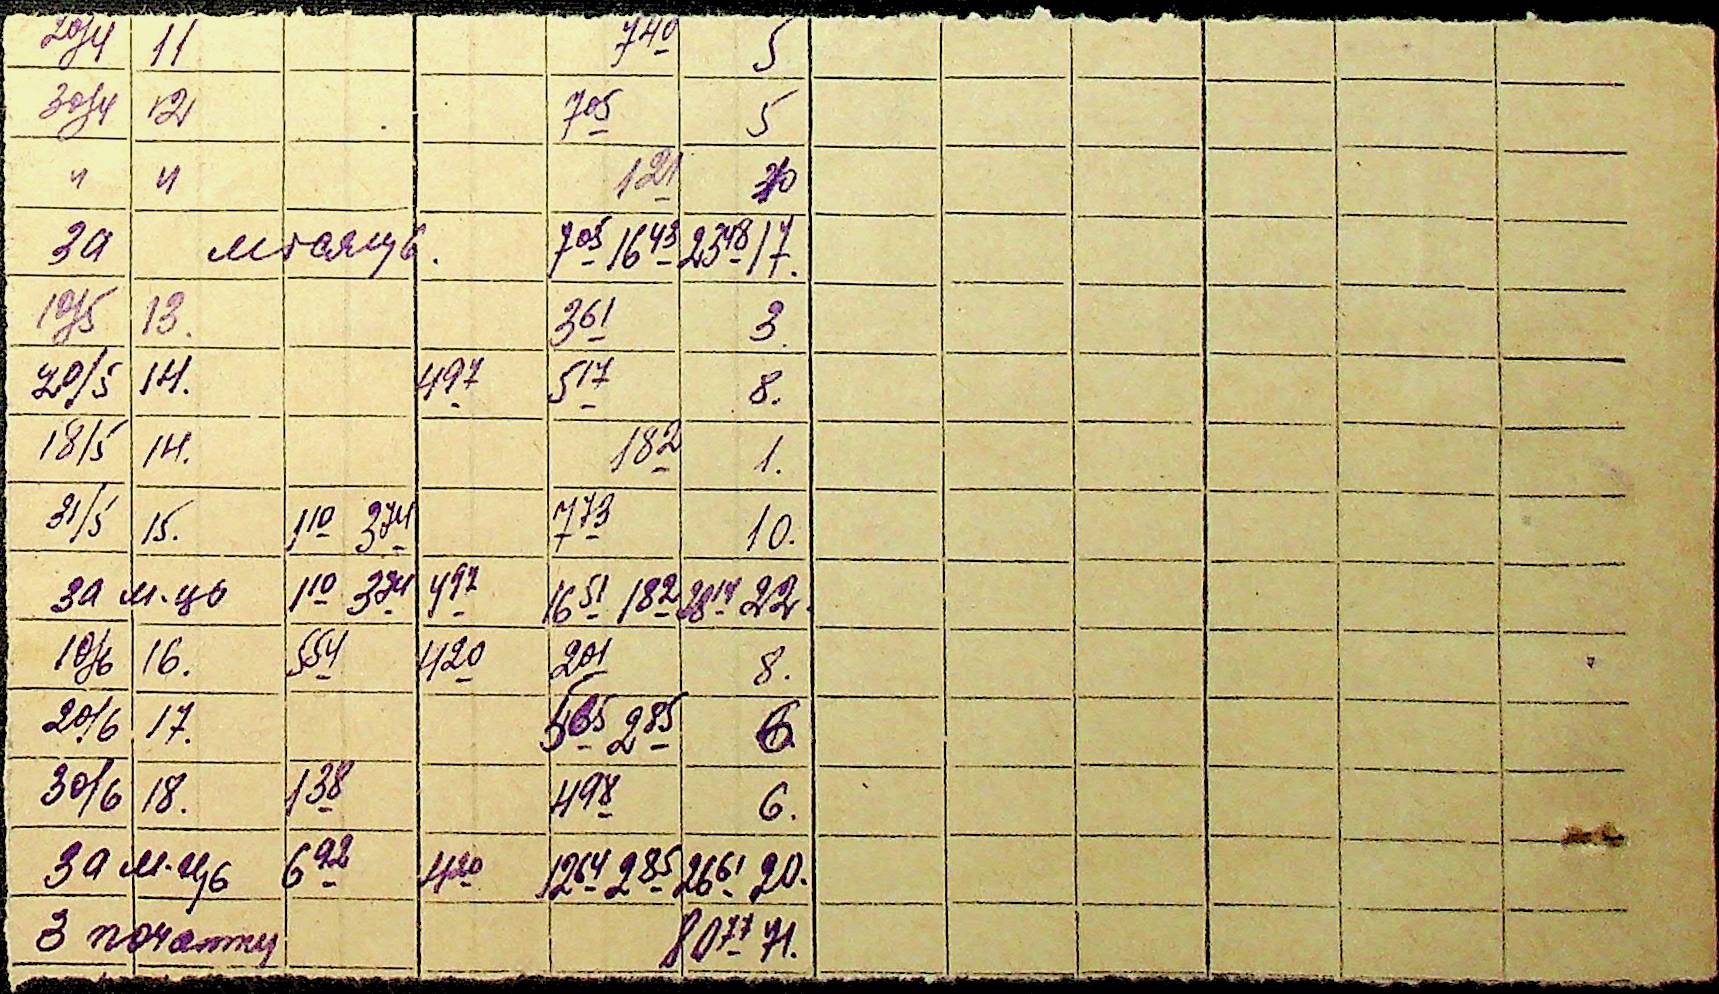 20/4 11 7 40 5
30/4 12 7 05 5
" " 1 21
За місяць. 7 05 16 43 23 48 17.
10/5 13. 3 61 3.
20/5 14. 4 97 5 17 8.
18/5 14. 1 82 1.
31/5 15. 1 10 3 74 7 73 10.
За м-ць 1 10 3 74 4 97 16 51 1 82 28 14 22.
10/6 16. 5 54 4 20 2 01 8.
20/6 17. 5 65 2 85 6
30/6 18. 1 38 4 98 6.
За м-ць 6 92 4 20 12 64 2 85 26 61 20.
З початку 80 77 71.